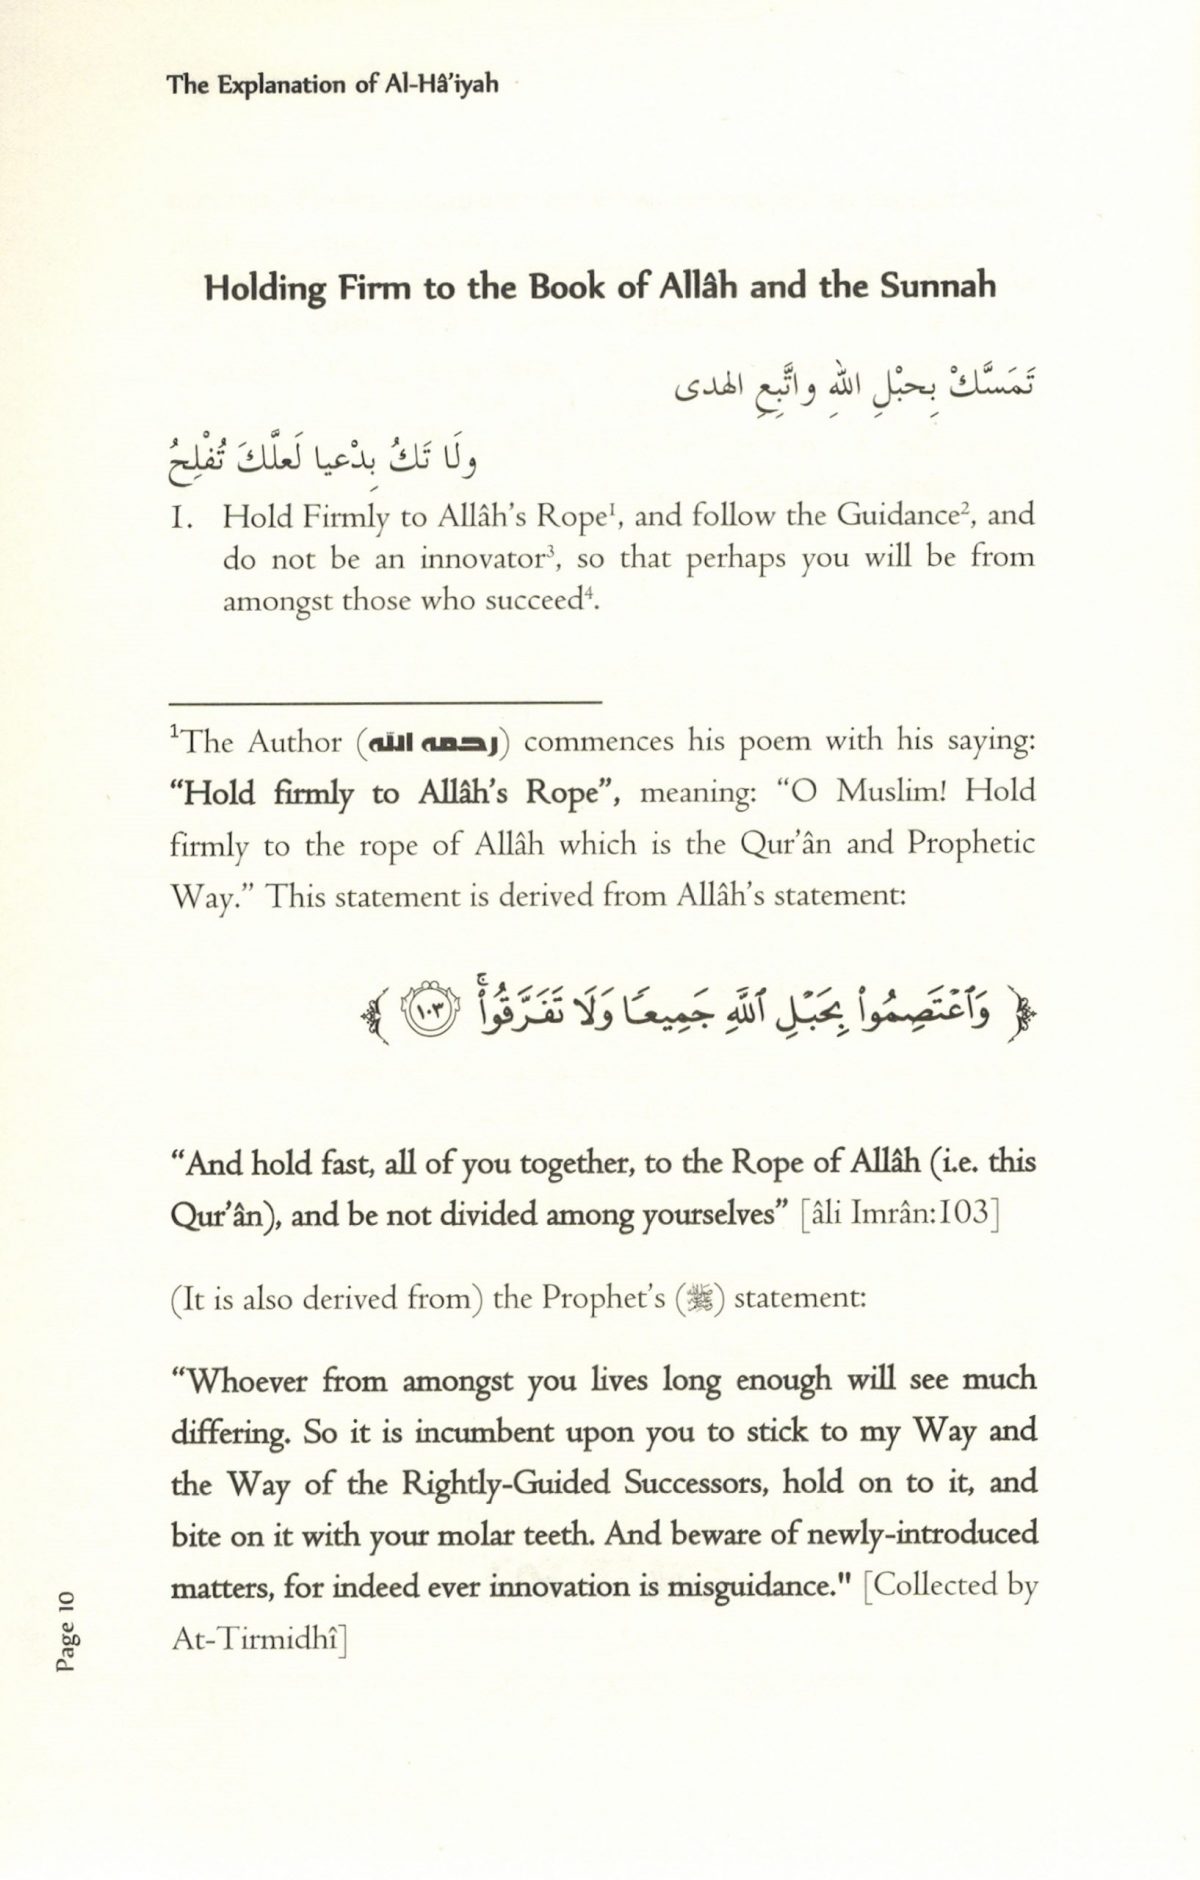 The Explanation of Al-Hâ'iyah
Holding Firm to the Book of Allâh and the Sunnah
تَمَسَّكْ بِحبْلِ اللهِ واتَّبِعِ الهدى
ولَا تَكُ بِدْعيا لَعلَّكَ تُفْلِحُ
1. Hold Firmly to Allâh's Rope¹, and follow the Guidance², and
do not be an innovator³, so that perhaps you will be from
amongst those who succeed⁴.
¹The Author (رحمه الله) commences his poem with his saying:
“Hold firmly to Allâh's Rope”, meaning: “O Muslim! Hold
firmly to the rope of Allâh which is the Qur'ân and Prophetic
Way.” This statement is derived from Allâh's statement:
﴿ وَٱعْتَصِمُوا۟ بِحَبْلِ ٱللَّهِ جَمِيعًا وَلَا تَفَرَّقُوا۟ۚ ١٠٣ ﴾
“And hold fast, all of you together, to the Rope of Allâh (i.e. this
Qur'ân), and be not divided among yourselves” [âli Imrân:103]
(It is also derived from) the Prophet's (ﷺ) statement:
“Whoever from amongst you lives long enough will see much
differing. So it is incumbent upon you to stick to my Way and
the Way of the Rightly-Guided Successors, hold on to it, and
bite on it with your molar teeth. And beware of newly-introduced
matters, for indeed ever innovation is misguidance." [Collected by
At-Tirmidhî]
Page 10